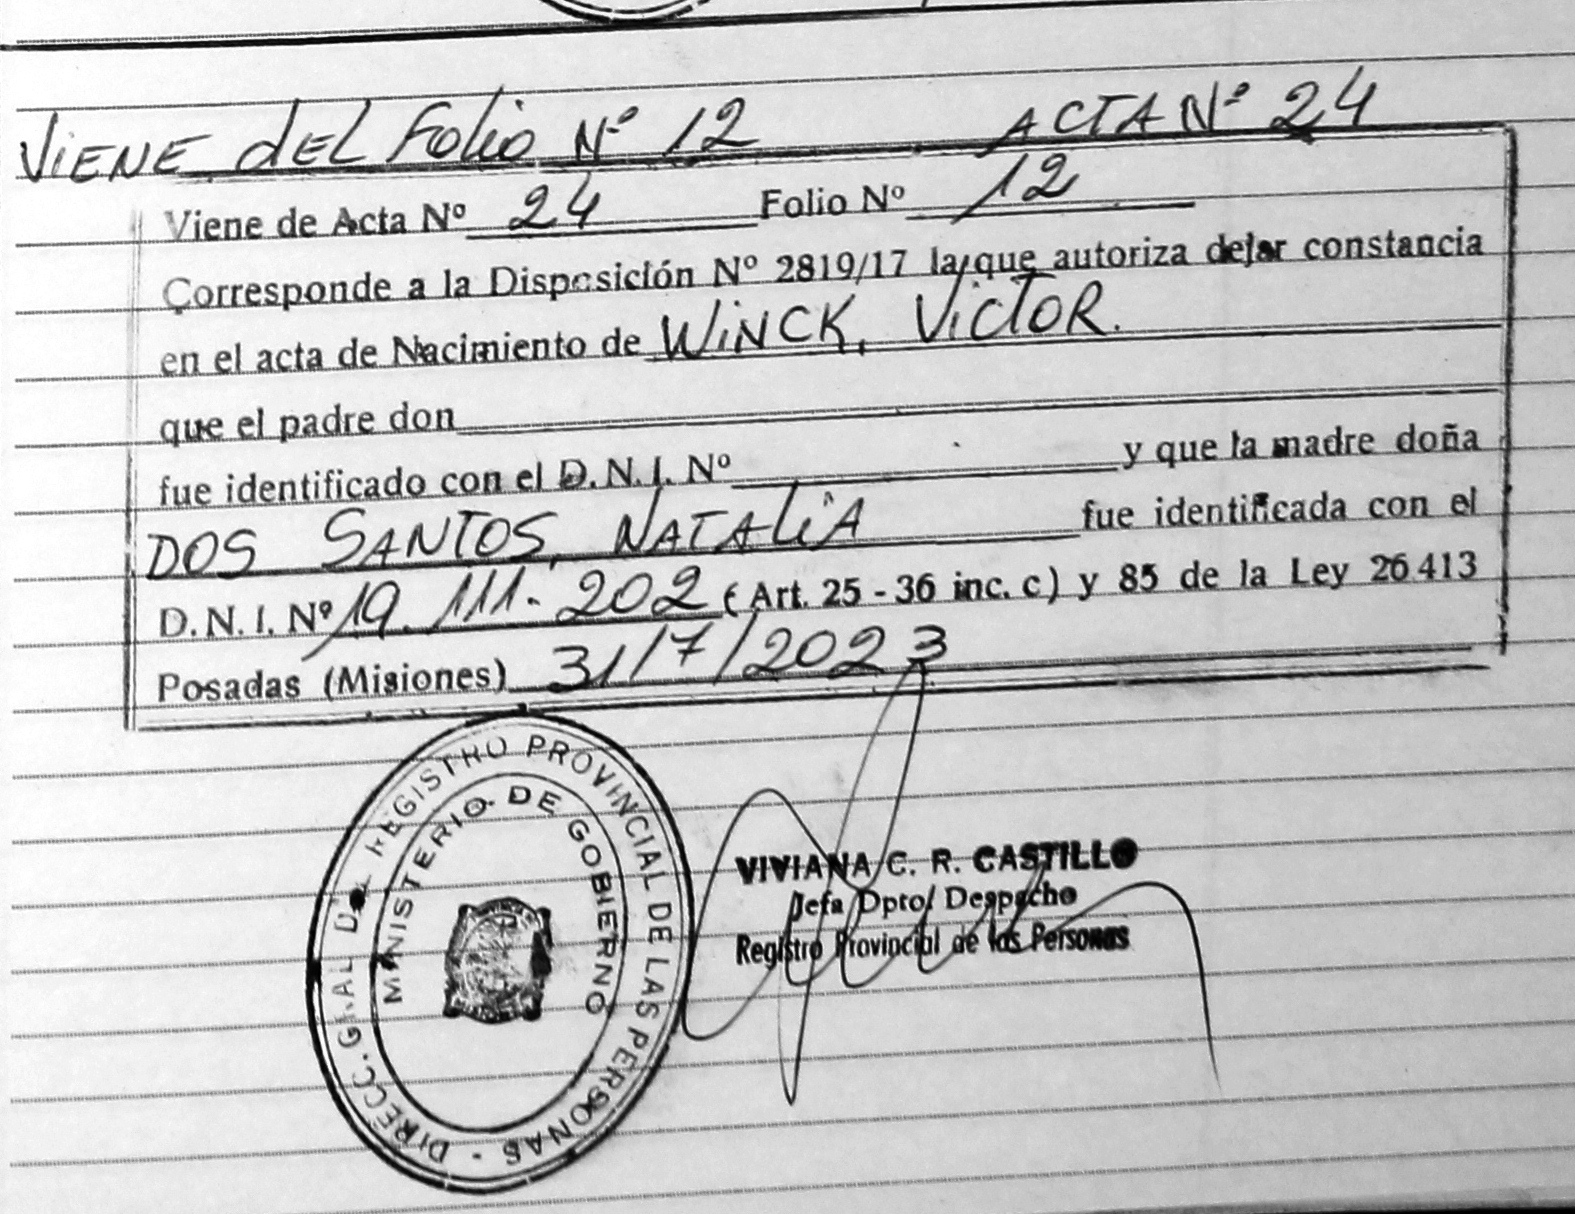 VIENE DEL FOLIO Nº 12 ACTA Nº 24
Viene de Acta Nº 24 Folio Nº 12
Corresponde a la Disposición Nº 2819/17 la que autoriza dejar constancia
en el acta de Nacimiento de WINCK, VICTOR.
que el padre don
fue identificado con el D.N.I. Nº y que la madre doña
DOS SANTOS, NATALIA fue identificada con el
D.N.I. Nº 19.111.202 (Art. 25 - 36 inc. c) y 85 de la Ley 26413
Posadas (Misiones) 31/7/2023
DIRECC. GRAL DEL REGISTRO PROVINCIAL DE LAS PERSONAS -
MINISTERIO DE GOBIERNO
VIVIANA C. R. CASTILLO
Jefa Dpto. Despacho
Registro Provincial de las Personas